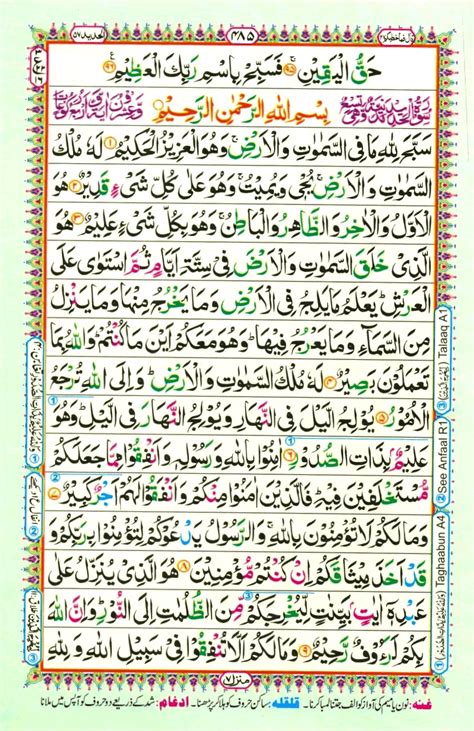 الحدید ۵۷
۴۸۵
قال فما خطبکم ۲۷
حَقُّ الْيَقِيْنِ ۞٩٥ فَسَبِّحْ بِاسْمِ رَبِّكَ الْعَظِيْمِ ۞٩٦
بِسْمِ اللهِ الرَّحْمٰنِ الرَّحِيْمِ
سَبَّحَ لِلّٰهِ مَا فِى السَّمٰوٰتِ وَالْاَرْضِ ۚ وَهُوَ الْعَزِيْزُ الْحَكِيْمُ ۞١ لَهٗ مُلْكُ
السَّمٰوٰتِ وَالْاَرْضِ ۚ يُحْيٖ وَيُمِيْتُ ۚ وَهُوَ عَلٰى كُلِّ شَىْءٍ قَدِيْرٌ ۞٢ هُوَ
الْاَوَّلُ وَالْاٰخِرُ وَالظَّاهِرُ وَالْبَاطِنُ ۚ وَهُوَ بِكُلِّ شَىْءٍ عَلِيْمٌ ۞٣ هُوَ
الَّذِىْ خَلَقَ السَّمٰوٰتِ وَالْاَرْضَ فِىْ سِتَّةِ اَيَّامٍ ثُمَّ اسْتَوٰى عَلَى
الْعَرْشِ ؕ يَعْلَمُ مَا يَلِجُ فِى الْاَرْضِ وَمَا يَخْرُجُ مِنْهَا وَمَا يَنْزِلُ
مِنَ السَّمَآءِ وَمَا يَعْرُجُ فِيْهَا ؕ وَهُوَ مَعَكُمْ اَيْنَ مَا كُنْتُمْ ؕ وَاللهُ بِمَا
تَعْمَلُوْنَ بَصِيْرٌ ۞٤ لَهٗ مُلْكُ السَّمٰوٰتِ وَالْاَرْضِ ؕ وَاِلَى اللهِ تُرْجَعُ
الْاُمُوْرُ ۞٥ يُوْلِجُ الَّيْلَ فِى النَّهَارِ وَيُوْلِجُ النَّهَارَ فِى الَّيْلِ ؕ وَهُوَ
عَلِيْمٌۢ بِذَاتِ الصُّدُوْرِ ۞٦ اٰمِنُوْا بِاللهِ وَرَسُوْلِهٖ وَاَنْفِقُوْا مِمَّا جَعَلَكُمْ
مُّسْتَخْلَفِيْنَ فِيْهِ ؕ فَالَّذِيْنَ اٰمَنُوْا مِنْكُمْ وَاَنْفَقُوْا لَهُمْ اَجْرٌ كَبِيْرٌ ۞٧
وَمَا لَكُمْ لَا تُؤْمِنُوْنَ بِاللهِ ۚ وَالرَّسُوْلُ يَدْعُوْكُمْ لِتُؤْمِنُوْا بِرَبِّكُمْ وَ
قَدْ اَخَذَ مِيْثَاقَكُمْ اِنْ كُنْتُمْ مُّؤْمِنِيْنَ ۞٨ هُوَ الَّذِىْ يُنَزِّلُ عَلٰى
عَبْدِهٖۤ اٰيٰتٍۭ بَيِّنٰتٍ لِّيُخْرِجَكُمْ مِّنَ الظُّلُمٰتِ اِلَى النُّوْرِ ؕ وَاِنَّ اللهَ
بِكُمْ لَرَءُوْفٌ رَّحِيْمٌ ۞٩ وَمَا لَكُمْ اَلَّا تُنْفِقُوْا فِىْ سَبِيْلِ اللهِ وَلِلّٰهِ
منزل ۷
③ Talaaq A1
② See Anfaal R1
① Taghaabun A4
غنه: نون یا میم کی آواز کو الف جتنا لمبا کرنا۔ قلقله: ساکن حروف کو ہلا کر پڑھنا۔ ادغام: شد کے ذریعے دو حروف کو آپس میں ملانا